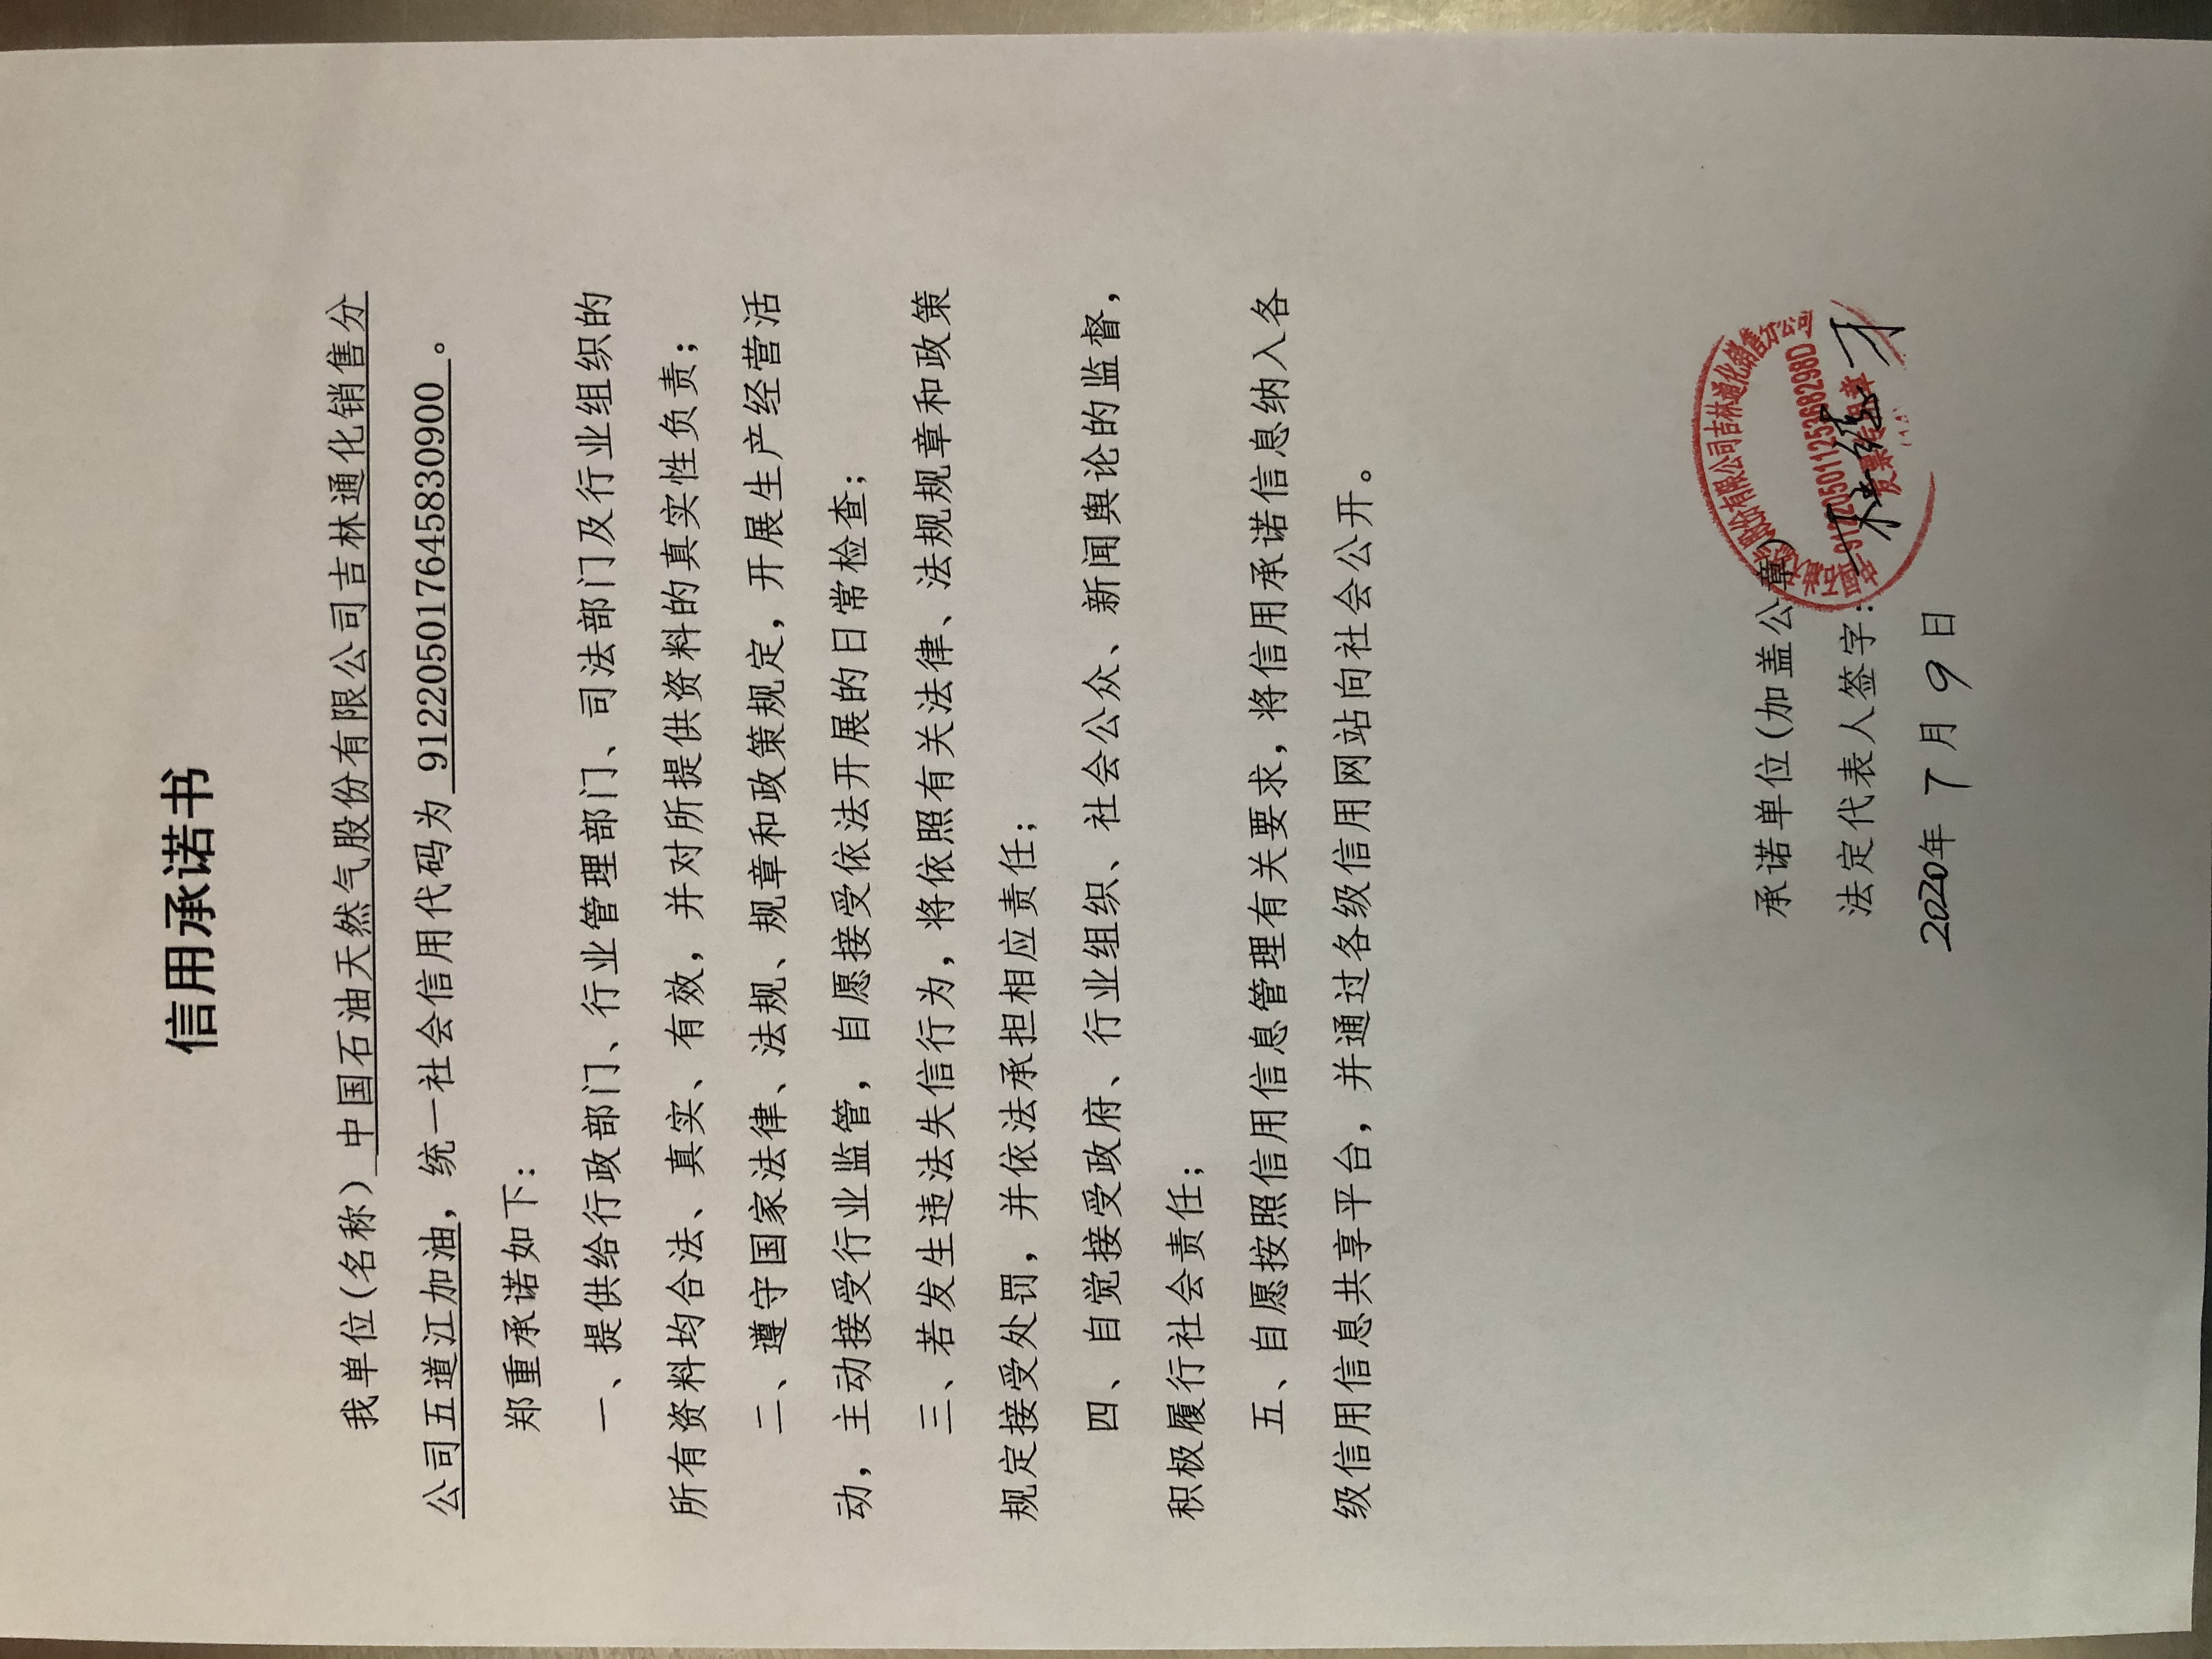 信用承诺书
我单位(名称) 中国石油天然气股份有限公司吉林通化销售分
公司五道江加油，统一社会信用代码为 912205017645830900 。
郑重承诺如下：
一、提供给行政部门、行业管理部门、司法部门及行业组织的
所有资料均合法、真实、有效，并对所提供资料的真实性负责；
二、遵守国家法律、法规、规章和政策规定，开展生产经营活
动，主动接受行业监管，自愿接受依法开展的日常检查；
三、若发生违法失信行为，将依照有关法律、法规规章和政策
规定接受处罚，并依法承担相应责任；
四、自觉接受政府、行业组织、社会公众、新闻舆论的监督，
积极履行社会责任；
五、自愿按照信用信息管理有关要求，将信用承诺信息纳入各
级信用信息共享平台，并通过各级信用网站向社会公开。
承诺单位(加盖公章)
法定代表人签字：
2020年 7 月 9 日
股份有限公司吉林通化销售分公司
91220501125368298D
发票专用章